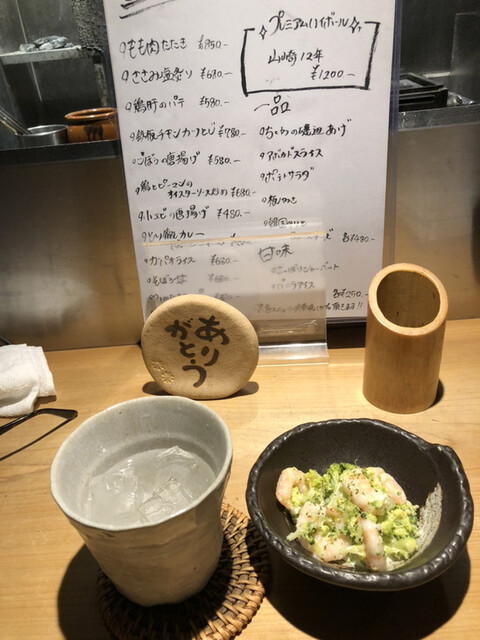 もも肉たたき ¥850.-
ささみ塩祭り ¥680.-
鶏肝のパテ ¥580.-
鉄板チキンカツとじ ¥780.-
ごぼうの唐揚げ ¥580.-
鶏とピーマンのオイスターソース炒め ¥680.-
小エビ唐揚げ ¥480.-
カレー
ガパオライス ¥680.-
プレミアムハイボール
山崎12年
¥1200.-
一品
ちくわの磯辺あげ
アボカドスライス
ポテトサラダ
梅つめき
各¥480.-
甘味
さっぱりシャーベット
バニラアイス
各¥250.-
ありがとう